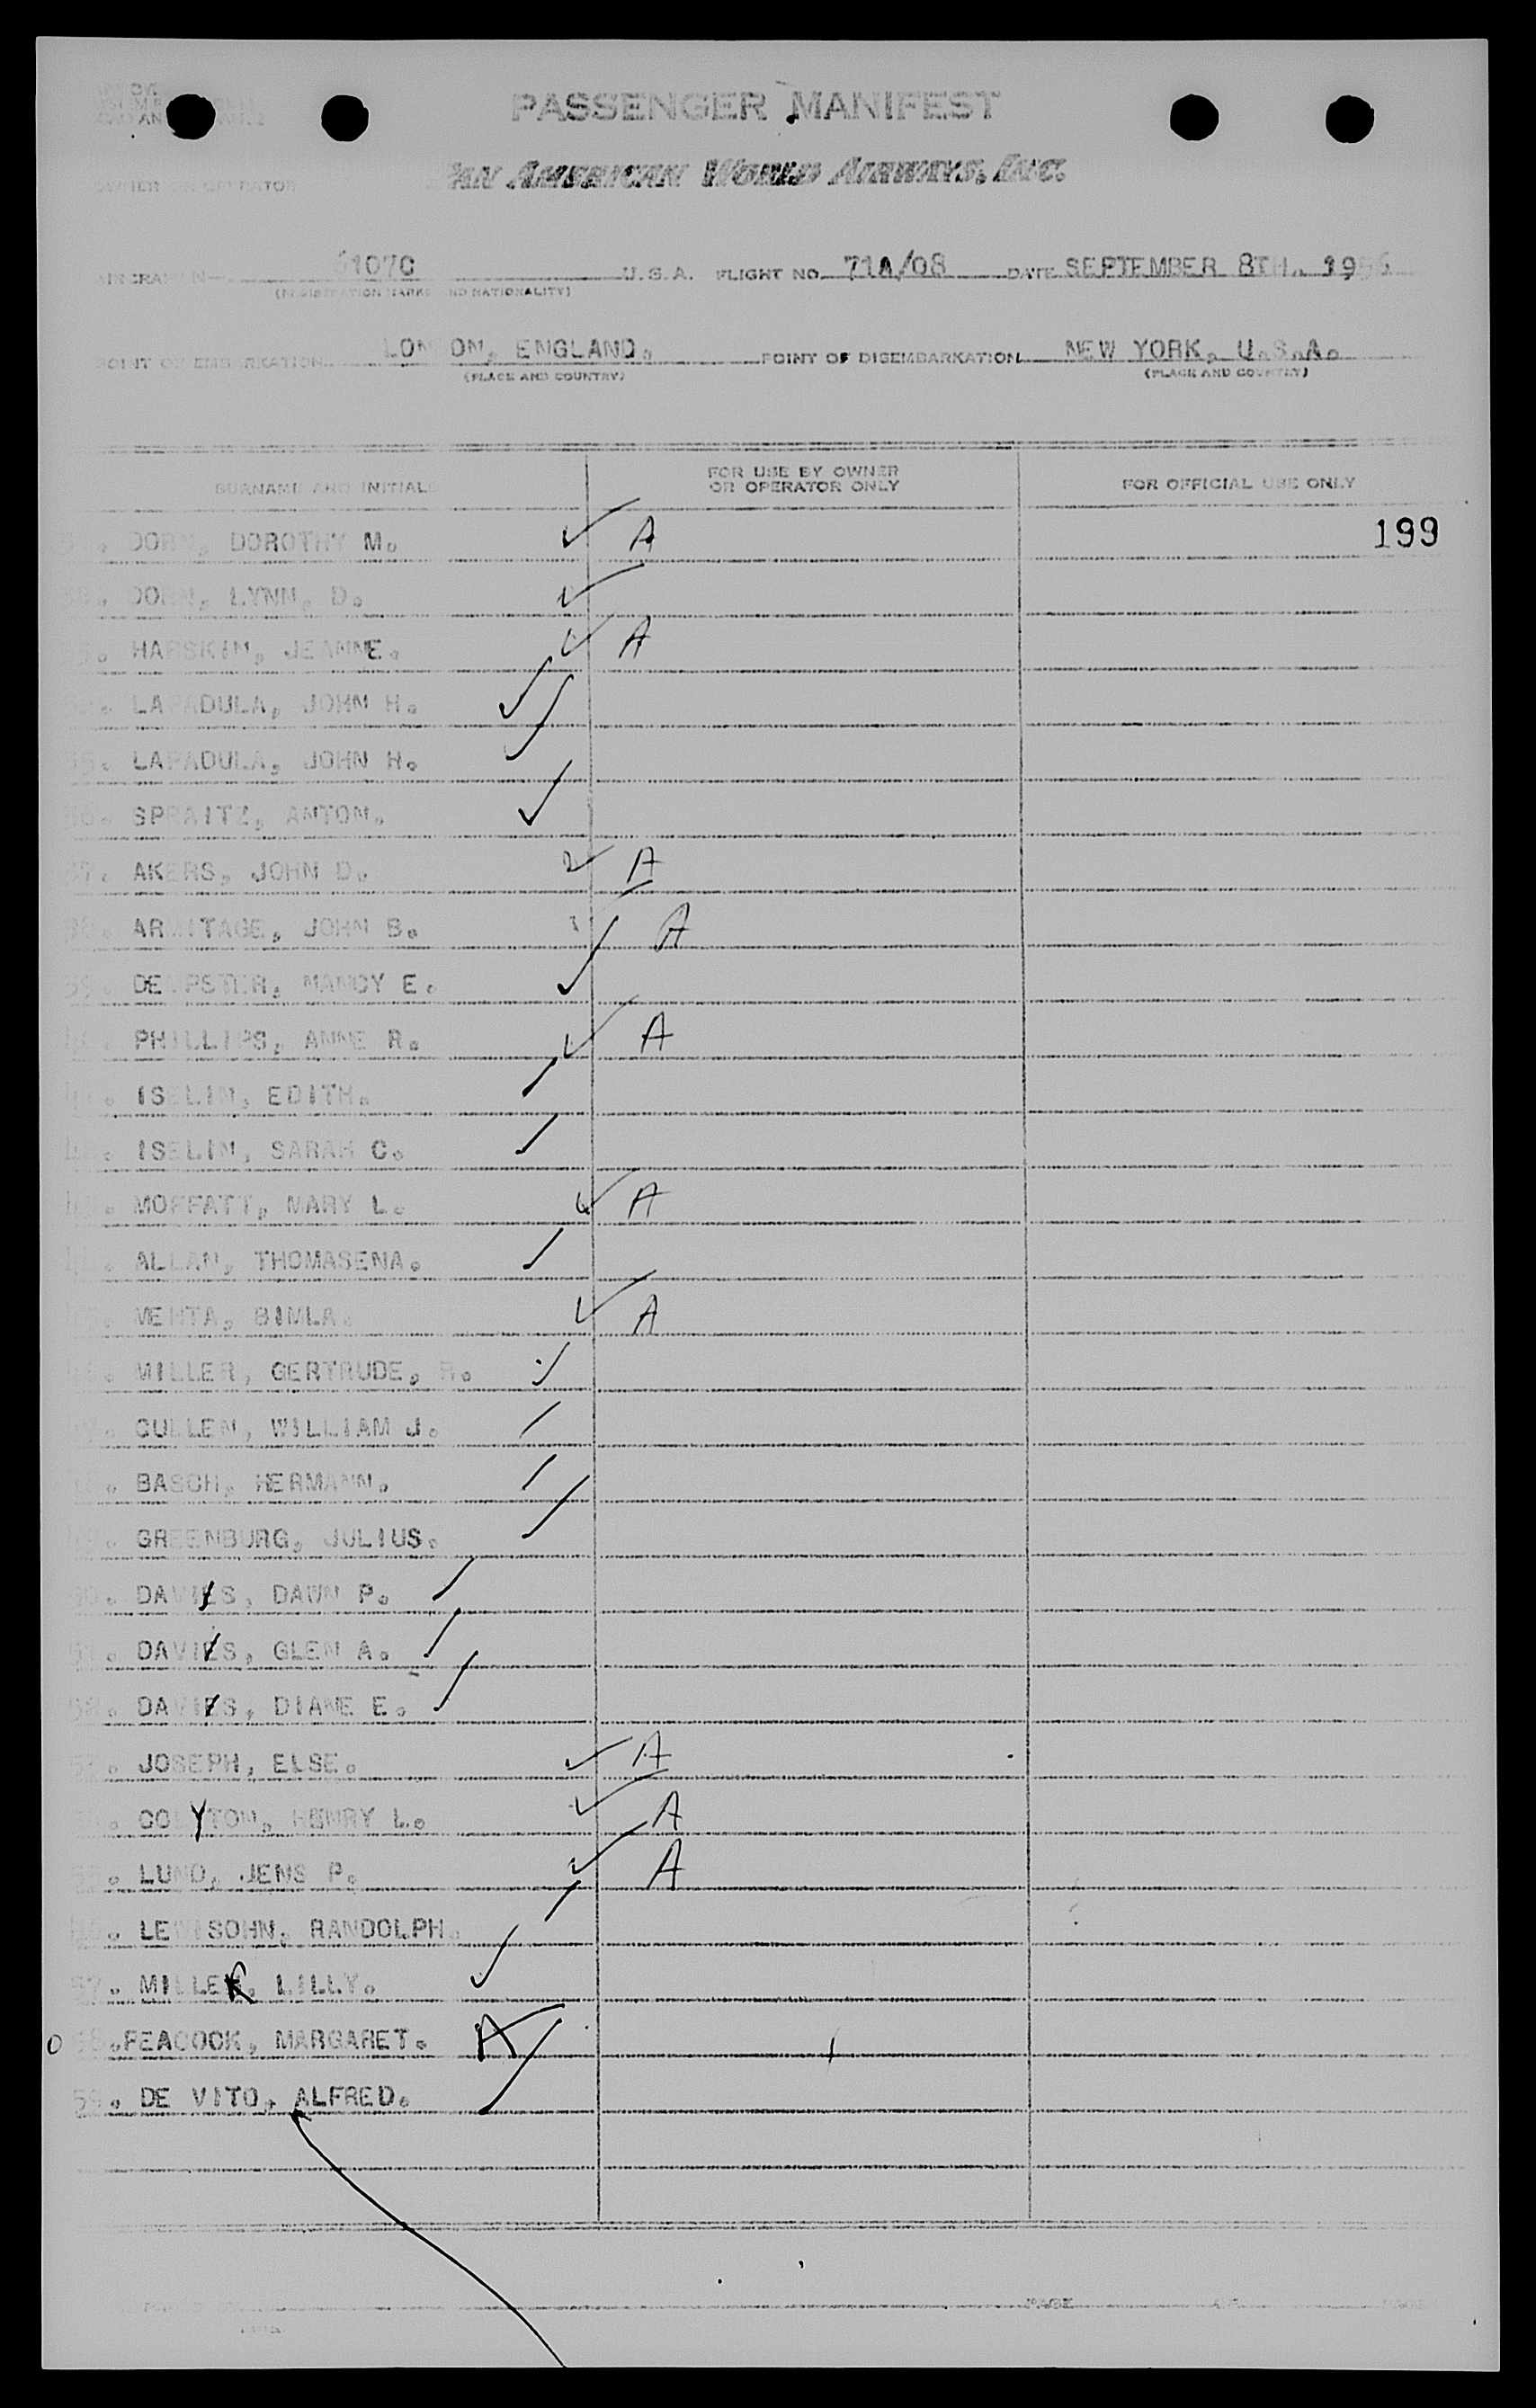 PASSENGER MANIFEST
PAN AMERICAN WORLD AIRWAYS, INC.
OWNER OR OPERATOR
AIRCRAFT N 6107C U.S.A. FLIGHT NO. 71A/08 DATE SEPTEMBER 8TH. 1956
(REGISTRATION MARKS AND NATIONALITY)
POINT OF EMBARKATION LONDON, ENGLAND. POINT OF DISEMBARKATION NEW YORK, U.S.A.
(PLACE AND COUNTRY) (PLACE AND COUNTRY)
SURNAME AND INITIALS FOR USE BY OWNER OR OPERATOR ONLY FOR OFFICIAL USE ONLY
DORN, DOROTHY M. ✓ A 199
DORN, LYNN, D. ✓
HARSKIN, JEANNE. ✓ A
LAPADULA, JOHN H. ✓
35. LAPADULA, JOHN H. ✓
36. SPRAITZ, ANTON. ✓
37. AKERS, JOHN D. ✓ A
38. ARMITAGE, JOHN B. A
39. DEMPSTER, NANCY E. ✓
PHILLIPS, ANNE R. ✓ A
ISELIN, EDITH. /
ISELIN, SARAH C. /
MOFFATT, MARY L. ✓ A
ALLAN, THOMASENA. /
MEHTA, BIMLA. ✓ A
MILLER, GERTRUDE, R. ✓
CULLEN, WILLIAM J. /
BASCH, HERMANN. /
GREENBURG, JULIUS. /
50. DAVIES, DAWN P. /
51. DAVIES, GLEN A. /
52. DAVIES, DIANE E. /
53. JOSEPH, ELSE. ✓ A
COLYTON, HENRY L. ✓ A
55. LUND, JENS P. ✓ A
56. LEWISOHN, RANDOLPH. /
57. MILLER, LILLY. ✓
0 58. PEACOCK, MARGARET. A
59. DE VITO, ALFRED. /
PAGE OF